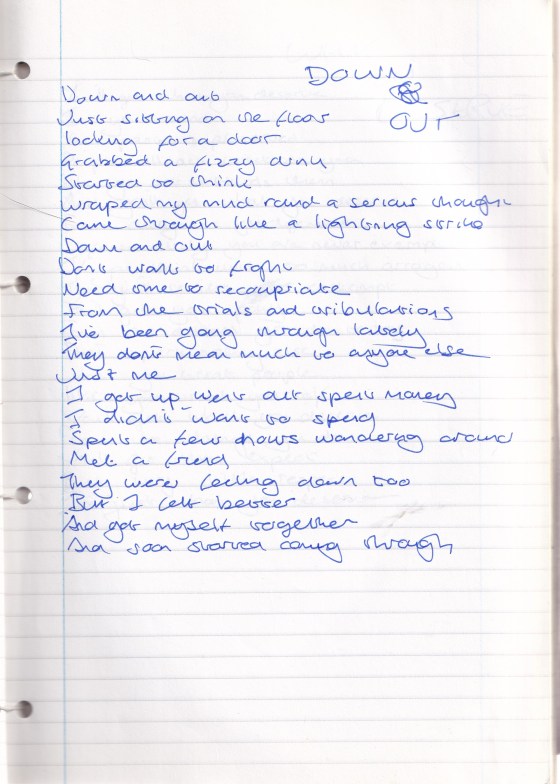 DOWN
&
OUT
Down and out
Just sitting on the floor
looking for a door
Grabbed a fizzy drink
Started to think
Wraped my mind round a serious thought
Came through like a lightning strike
Down and out
Don't want to fight
Need time to recoupriate
From the trials and tribulations
I've been going through lately
They don't mean much to anyone else
Just me
I got up went out spent money
I didn't want to spend
Spent a few hours wandering around
Met a friend
They were feeling down too
But I felt better
And got myself together
And soon started coming through